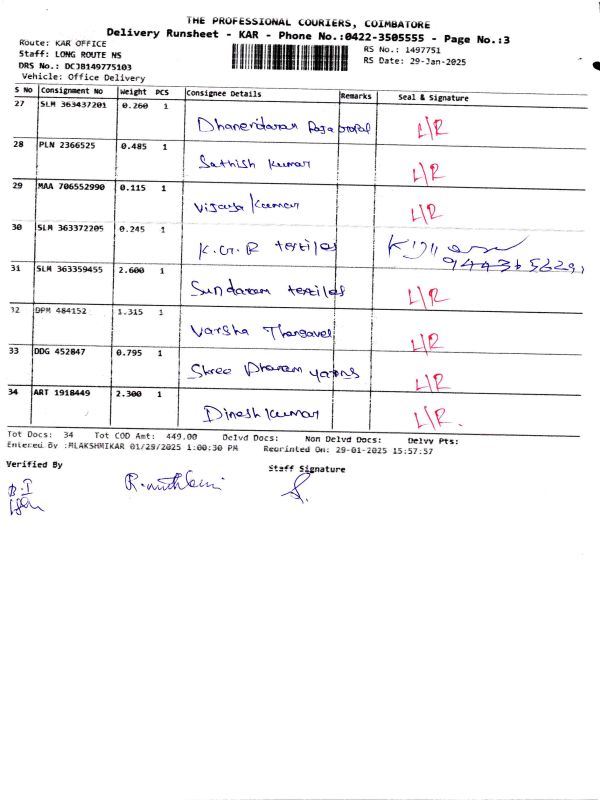 THE PROFESSIONAL COURIERS, COIMBATORE
Delivery Runsheet - KAR - Phone No.:0422-3505555 - Page No.:3
Route: KAR OFFICE
RS No.: 1497751
Staff: LONG ROUTE NS
RS Date: 29-Jan-2025
DRS No.: DCJB149775103
Vehicle: Office Delivery
S No Consignment No Weight PCS Consignee Details Remarks Seal & Signature
27 SLM 363437201 0.260 1
Dhanendaran L/R
28 PLN 2366525 0.485 1
Sathish kumar L/R
29 MAA 706552990 0.115 1
Vijaya Kumar L/R
30 SLM 363372205 0.245 1
K.G.R textiles
31 SLM 363359455 2.600 1
Sundaram textiles L/R
32 DPM 484152 1.315 1
Varsha Thangavel L/R
33 DDG 452847 0.795 1
Shree Dharam yarns L/R
34 ART 1918449 2.300 1
Dinesh kumar L/R.
Tot Docs: 34 Tot COD Amt: 449.00 Delvd Docs: Non Delvd Docs: Delvy Pts:
Entered By :MLAKSHMIKAR 01/29/2025 1:00:30 PM Reprinted On: 29-01-2025 15:57:57
Verified By
Staff Signature